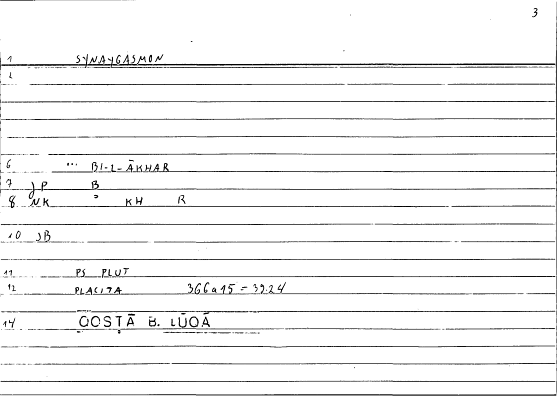 3
1 SYNAYGASMON
2
6 ... BI-L-ĀKHAR
7 JP B
8 NK ? KH R
10 JB
11 PS PLUT
12 PLACITA 366a15 = 39.24
14 QOSṬĀ B. LŪQĀ